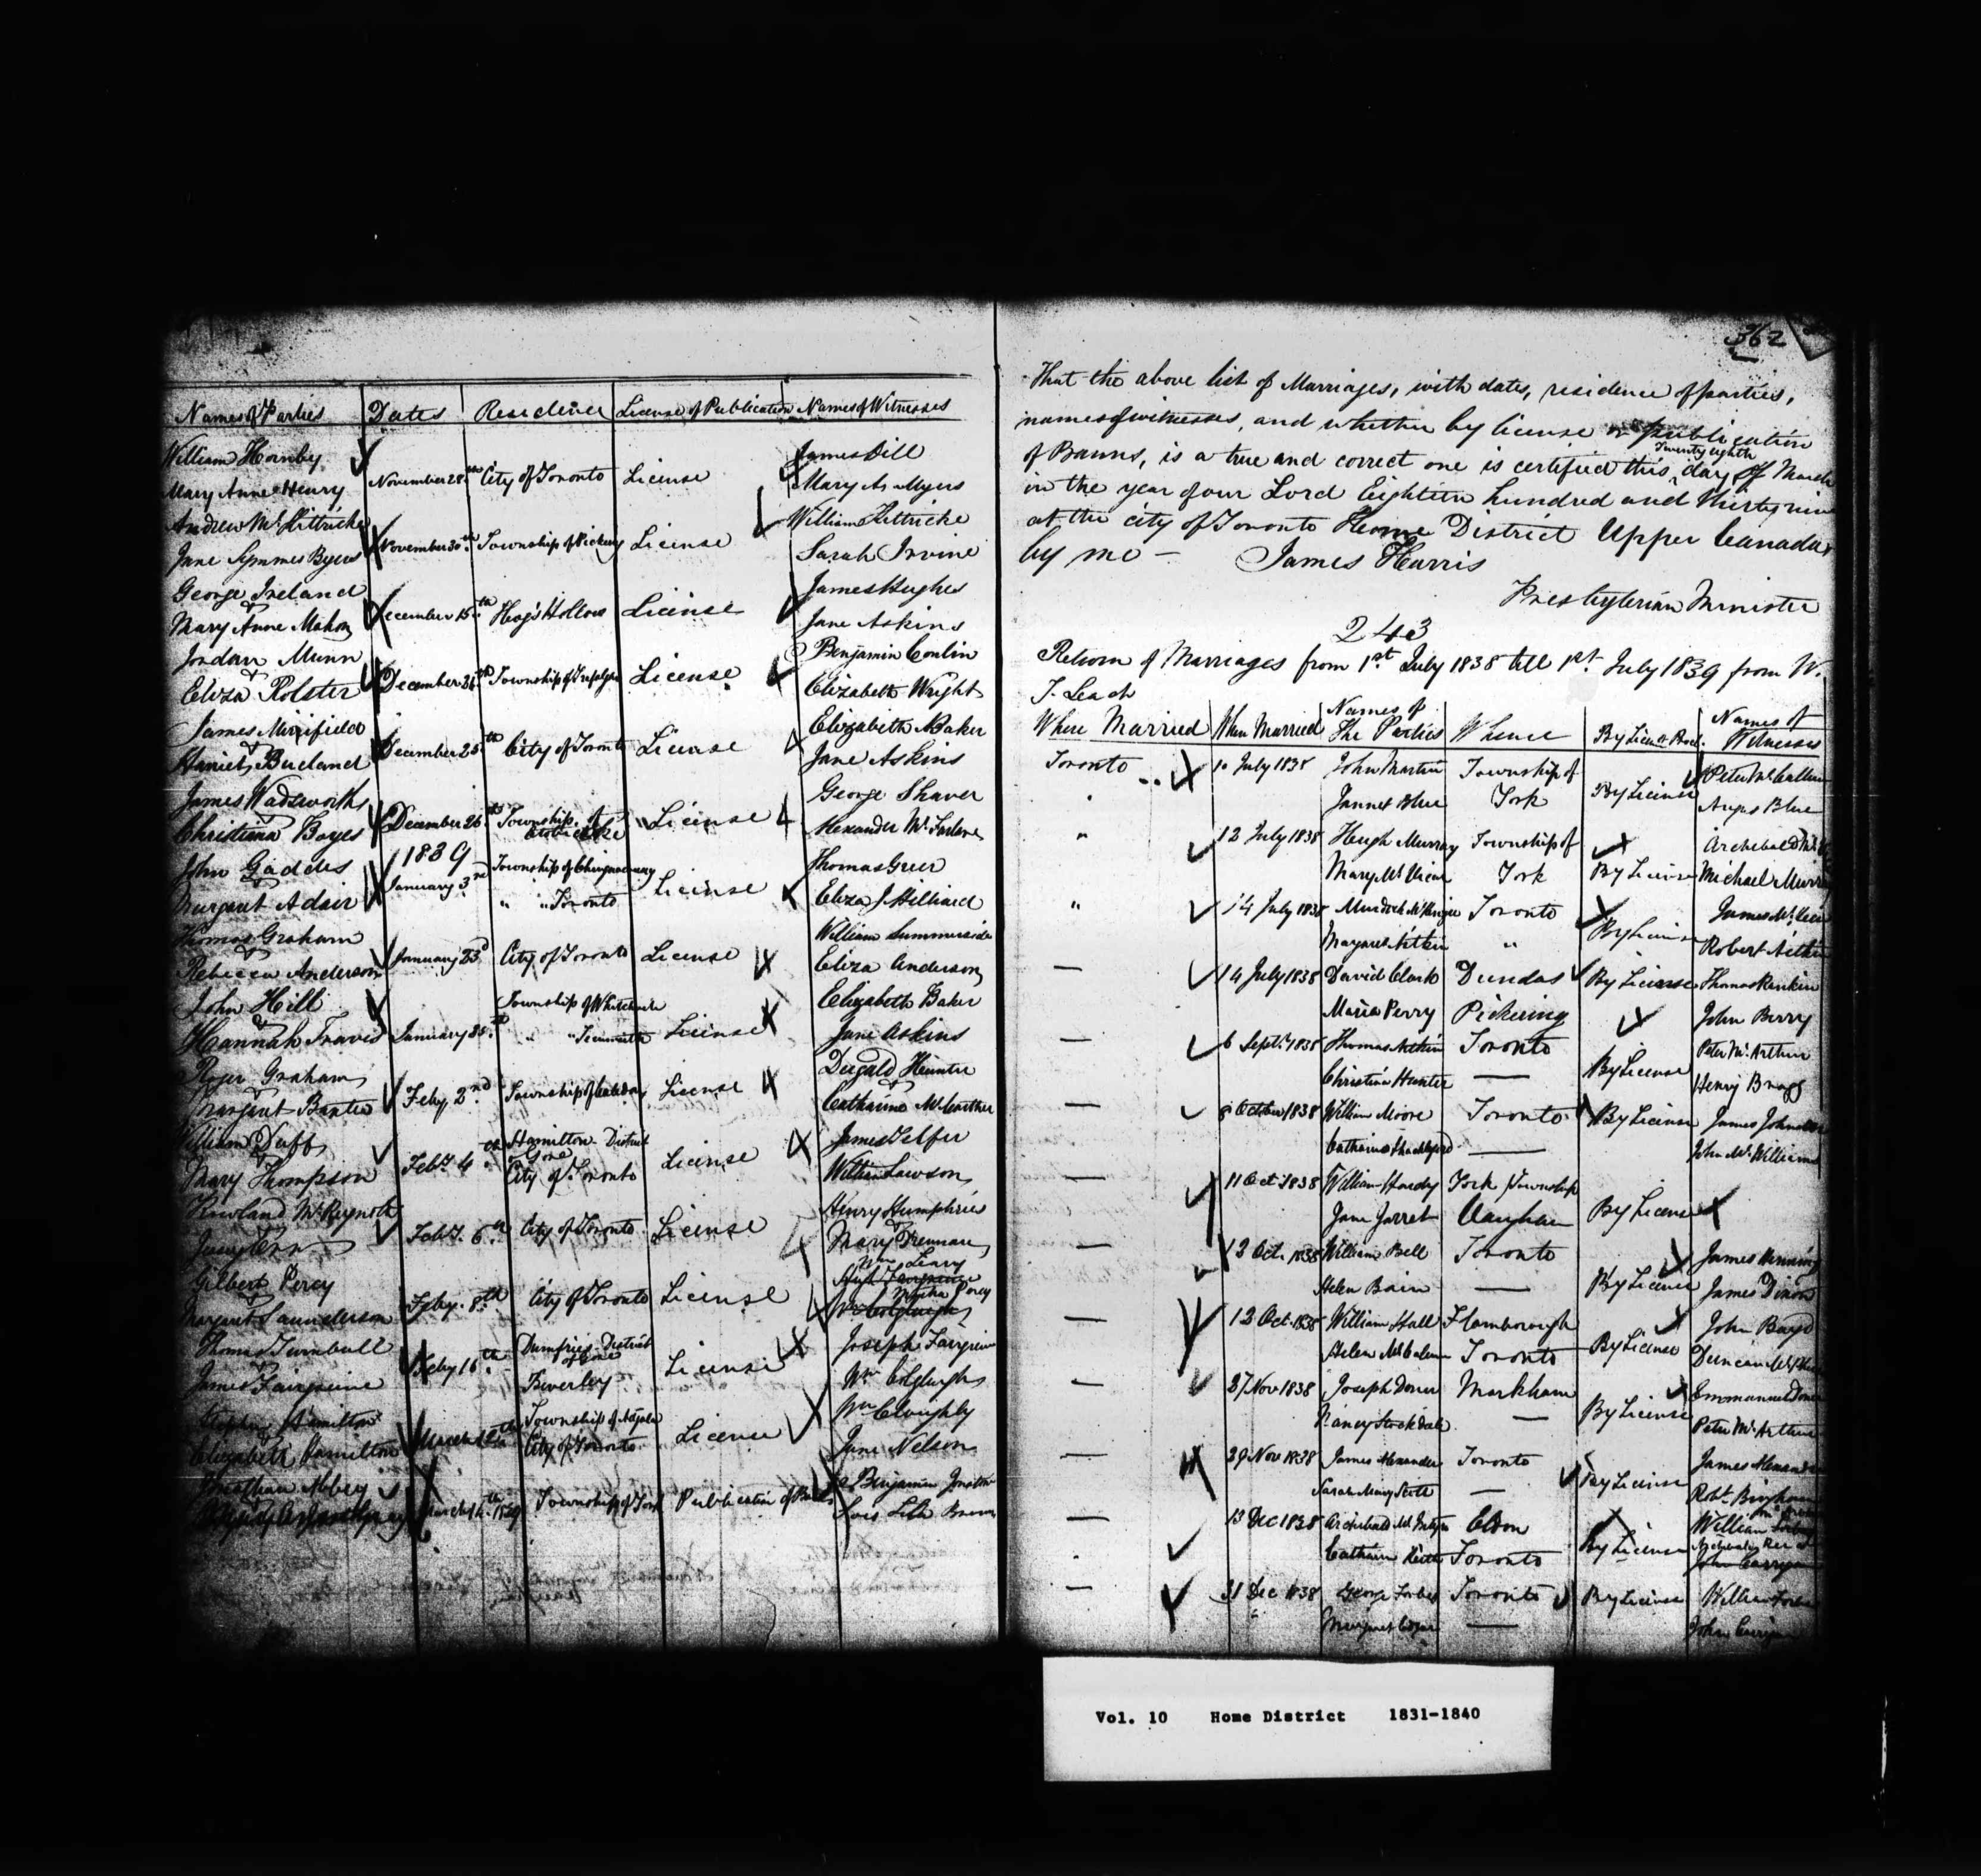 Names of Parties Dates Residence License of Publication Names of Witnesses
William Hornby James Dill
November 28th City of Toronto License
Mary Anne Henry Mary A. Myers
Andrew McKittricke William Kittricke
November 30th Township of Pickery License
Jane Symmes Byers Sarah Irvine
George Ireland James Hughes
& December 15th Hogs Hollow License
Mary Anne Mahon Jane Askins
Jordan Munn Benjamin Conlin
& December 26th Township of License
Eliza Rolster Elizabeth Wright
James Mirifield Elizabeth Baker
& December 25th City of Toronto License
Harriet Burland Jane Askins
James Wadsworth George Shaver
& December 26th Township of Etobicoke License
Christiana Boyes Alexander McFarlane
John Gaddes 1839 Township of Chinguacousy Thomas Greer
& January 3rd License
Margaret Adair " " Toronto Eliza J Hilliard
Thomas Graham William Summerside
& January 23d City of Toronto License
Rebecca Anderson Eliza Anderson
John Hill Township of Whitchurch Elizabeth Baker
& January 28th License
Hannah Travis " " Jane Askins
Roger Graham Dugald Hunter
& Feby 2nd Township of Caledon License
Margaret Baxter Catharine McCarther
William Duff Hamilton District Gore James Telfer
& Feby 4th License
Mary Thompson City of Toronto William Lawson
Rowland McReynolds Henry Humphries
Feby. 6th City of Toronto License
Mary Brennan
Gilbert Percy Wm Leary
Feby. 8th City of Toronto License
Margaret Saunderson
Thomas Turnbull Dumfries District of Gore Joseph Fairgrieve
Feby 16th License
Fairgrieve Beverley Wm Colghugh
Stephen Hamilton Township of Adjala Wm Cloughly
March 12th License
Elizabeth Hamilton City of Toronto Jane Nelson
Jonathan Abbey Benjamin Johnston
March 14th 1839 Township of York Publication of Banns
Lois Lilh Brown
362
That the above list of Marriages, with dates, residence of parties,
names of witnesses, and whether by license or publication
of Banns, is a true and correct one is certified this Twenty eighth day of March
in the year of our Lord Eighteen hundred and thirty nine
at the city of Toronto Home District Upper Canada
by me — James Harris
Presbyterian Minister
243
Return of Marriages from 1st July 1838 till 1st July 1839 from W.
T. Leach
Where Married When Married Names of The Parties Whence By Licen or Procl. Names of Witnesses
Toronto 10 July 1838 John Martin Township of By License Peter McCallum
Jannet Blue York Angus Blue
" 12 July 1838 Hugh Murray Township of Archibald
Mary McVicar York By License Michael Murray
" 14 July 1838 Murdoch McKenzie Toronto James
Margaret Aitkin " By License Robert Aitkin
— 14 July 1838 David Clark Dundas By License Thomas Rankin
Maria Perry Pickering John Berry
— 6 Septr 1838 Thomas Aitkin Toronto Peter McArthur
Christina Hunter — By License Henry Bragg
— 8 October 1838 William Moore Toronto By License James Johnston
Catharine Shackleford — John McWilliams
— 11 Oct 1838 William Hardy York Township
Jane Jarret Vaughan By License
— 12 Oct. 1838 William Bell Toronto James Henning
Helen Bain — By License James Dixon
— 12 Oct. 1838 William Hall Flamborough John Boyd
Helen McCalum Toronto By License Duncan
— 27 Nov 1838 Joseph Doner Markham Emmanuel Doner
Nancy Stockdale — By License Peter McArthur
— 29 Nov 1838 James Alexander Toronto By License James Alexander
Sarah Mary Scott — Robt. Bingham
— 13 Dec 1838 Archibald McIntyre Eldon William Forbes
Catharine Keith Toronto By License John Carrigan
— 31 Dec 1838 George Forbes Toronto By License William Forbes
Margaret Edgar — John Carrigan
Vol. 10 Home District 1831-1840